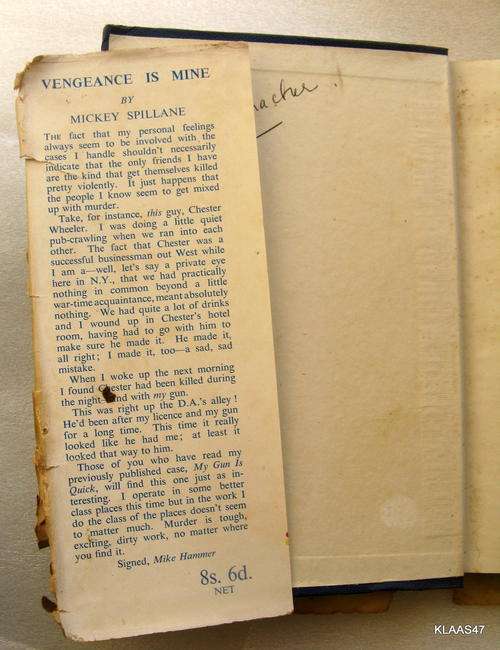 VENGEANCE IS MINE
BY
MICKEY SPILLANE
THE fact that my personal feelings
always seem to be involved with the
cases I handle shouldn't necessarily
indicate that the only friends I have
are the kind that get themselves killed
pretty violently. It just happens that
the people I know seem to get mixed
up with murder.
Take, for instance, this guy, Chester
Wheeler. I was doing a little quiet
pub-crawling when we ran into each
other. The fact that Chester was a
successful businessman out West while
I am a—well, let's say a private eye
here in N.Y., that we had practically
nothing in common beyond a little
war-time acquaintance, meant absolutely
nothing. We had quite a lot of drinks
and I wound up in Chester's hotel
room, having had to go with him to
make sure he made it. He made it,
all right; I made it, too—a sad, sad
mistake.
When I woke up the next morning
I found Chester had been killed during
the night—and with my gun.
This was right up the D.A.'s alley!
He'd been after my licence and my gun
for a long time. This time it really
looked like he had me; at least it
looked that way to him.
Those of you who have read my
previously published case, My Gun Is
Quick, will find this one just as in-
teresting. I operate in some better
class places this time but in the work I
do the class of the places doesn't seem
to matter much. Murder is tough,
exciting, dirty work, no matter where
you find it.
Signed, Mike Hammer
8s. 6d.
NET
KLAAS47